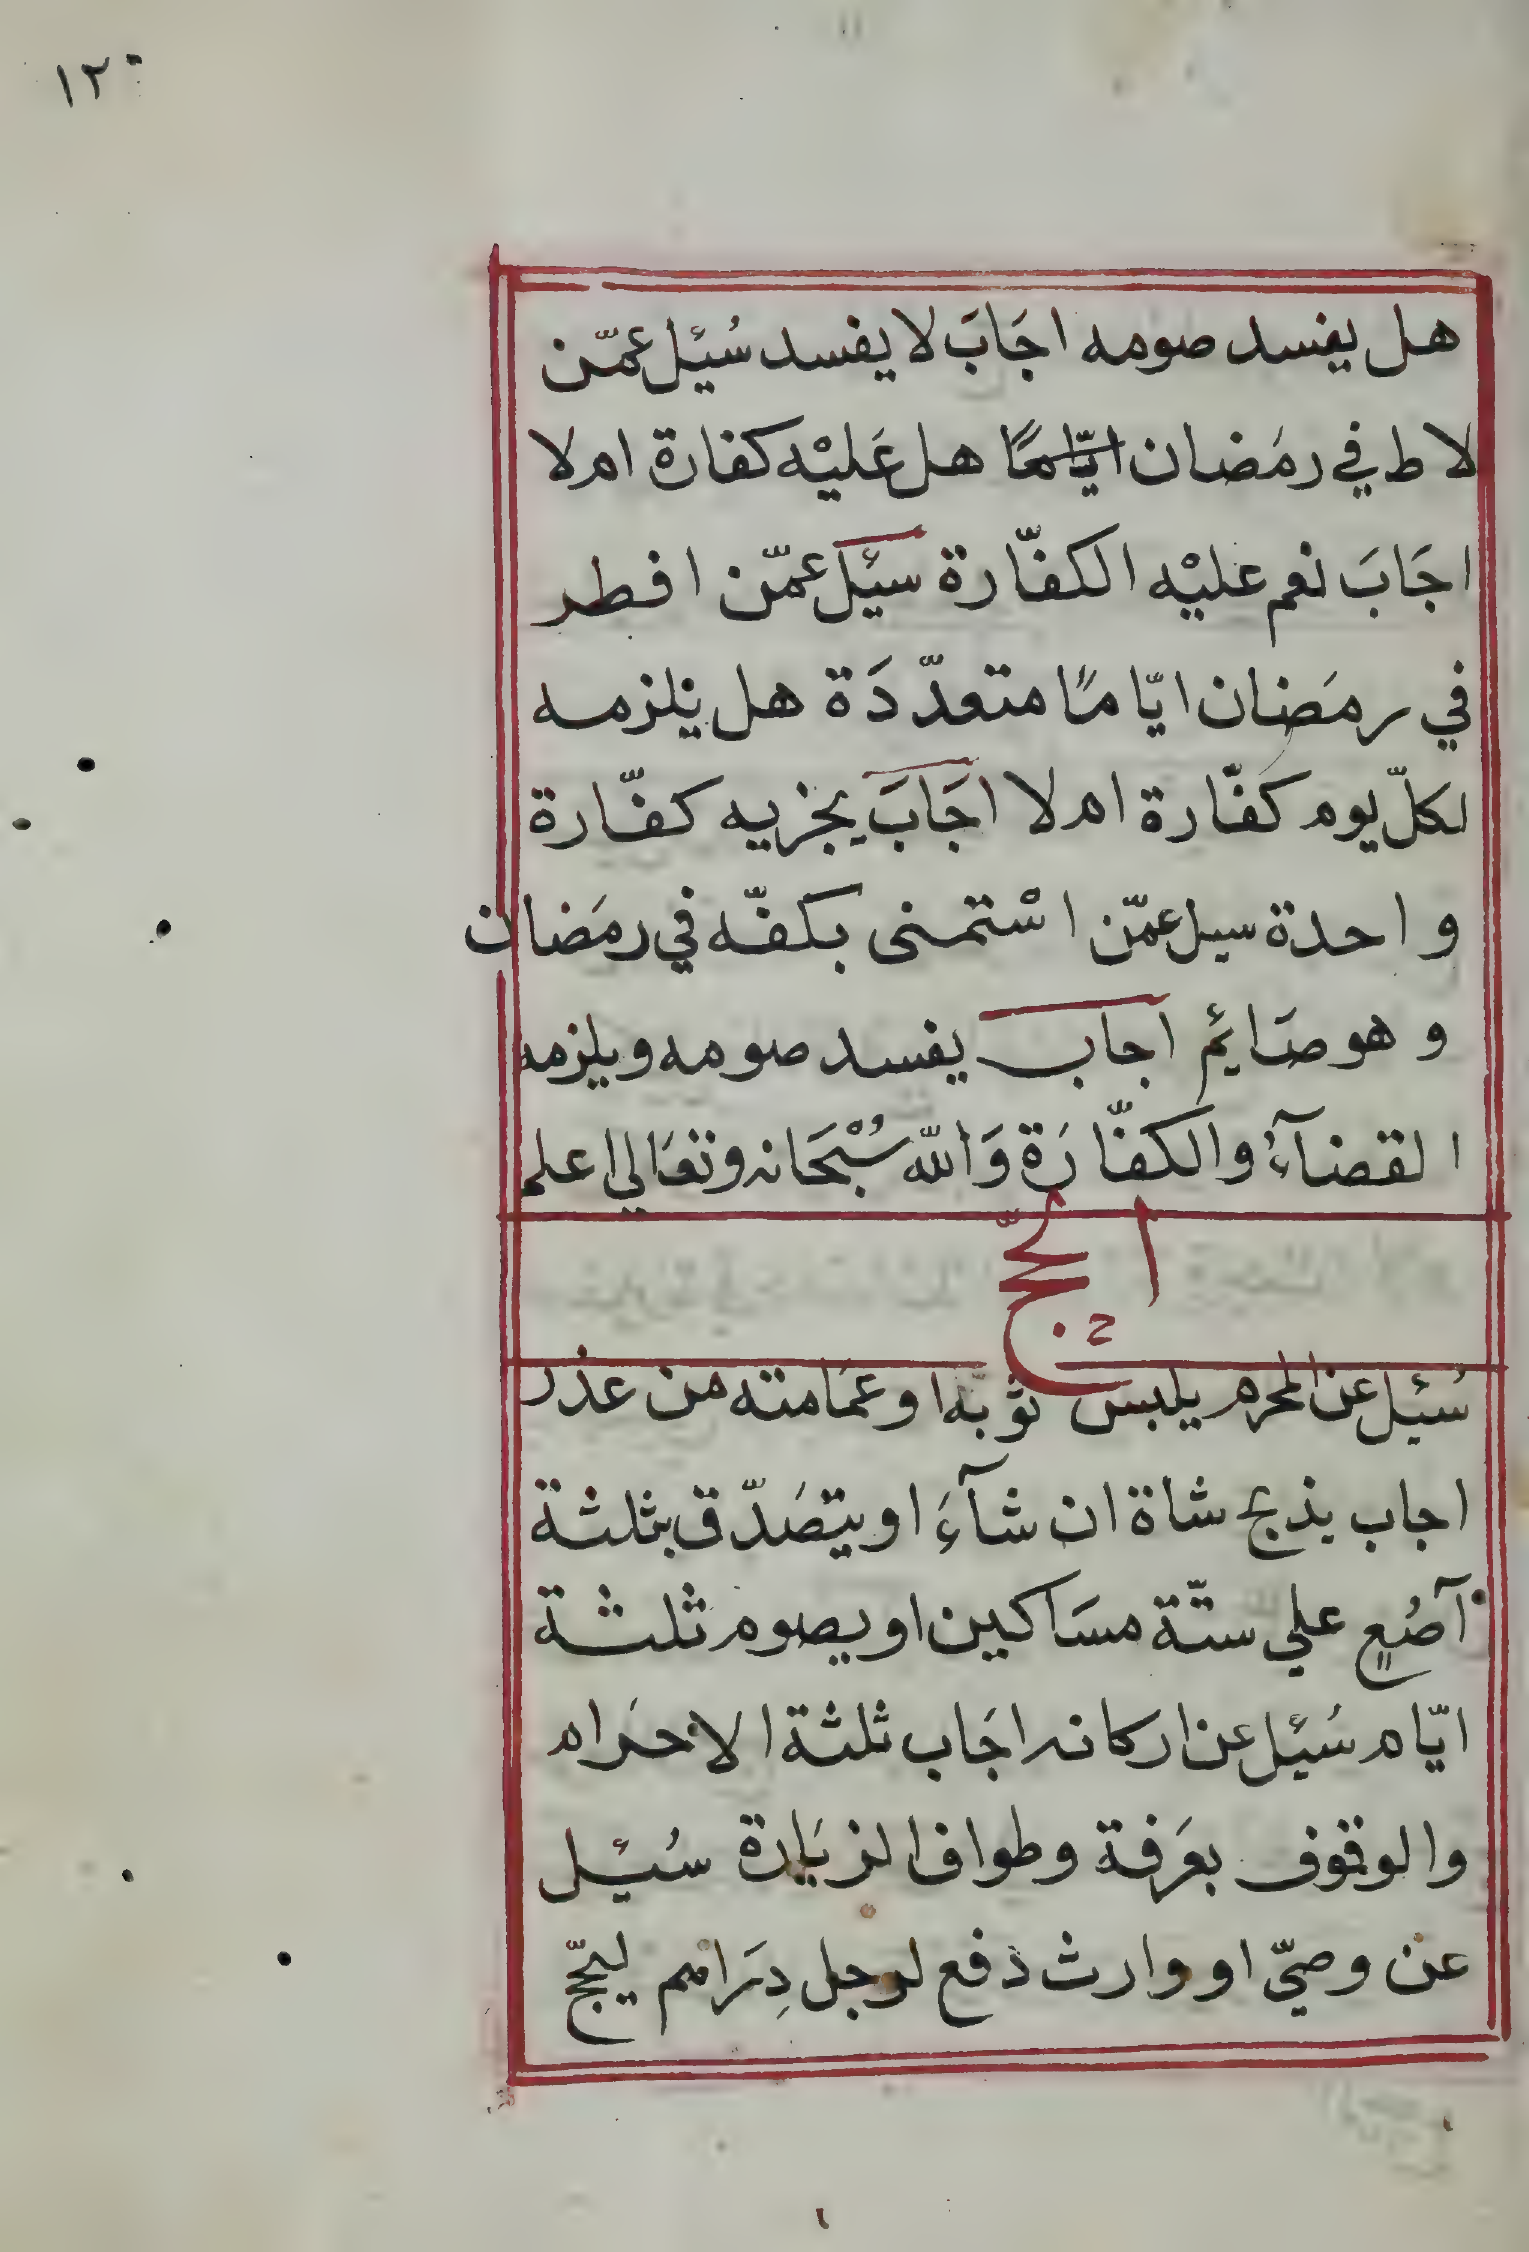 ١٢٠
هل يفسد صومه اجَابَ لا يفسد سُئِل عمّن
لاط في رمَضان ايّامًا هل عَليْه كفارة ام لا
اجَابَ نعم عليْه الكفّارة سئِل عمّن افطر
في رمَضان ايّامًا متعدّدَة هل يلزمه
لكلّ يوم كفّارة ام لا اجَابَ يجزيه كفّارة
واحدة سيل عمّن اسْتمنى بكفّه في رمَضان
وهو صَائِم اجاب يفسد صومه ويلزمه
القضآءُ والكفّارَة وَالله سُبْحَانه وتعَالي اعلم
الحجّ
سُئِل عن المحرم يلبس ثوبه او عمَامته من عذر
اجاب يذبح شاة ان شآءَ او يتصَدّق بثلثة
آصُعٍ علي ستّة مسَاكين او يصوم ثلثة
ايّام سُئِل عن اركانه اجَاب ثلثة الاحرَام
والوقوف بعَرفة وطواف الزيَارة سُئِل
عن وصيّ او وارث دفع لرجل دِرَاهم ليحجّ